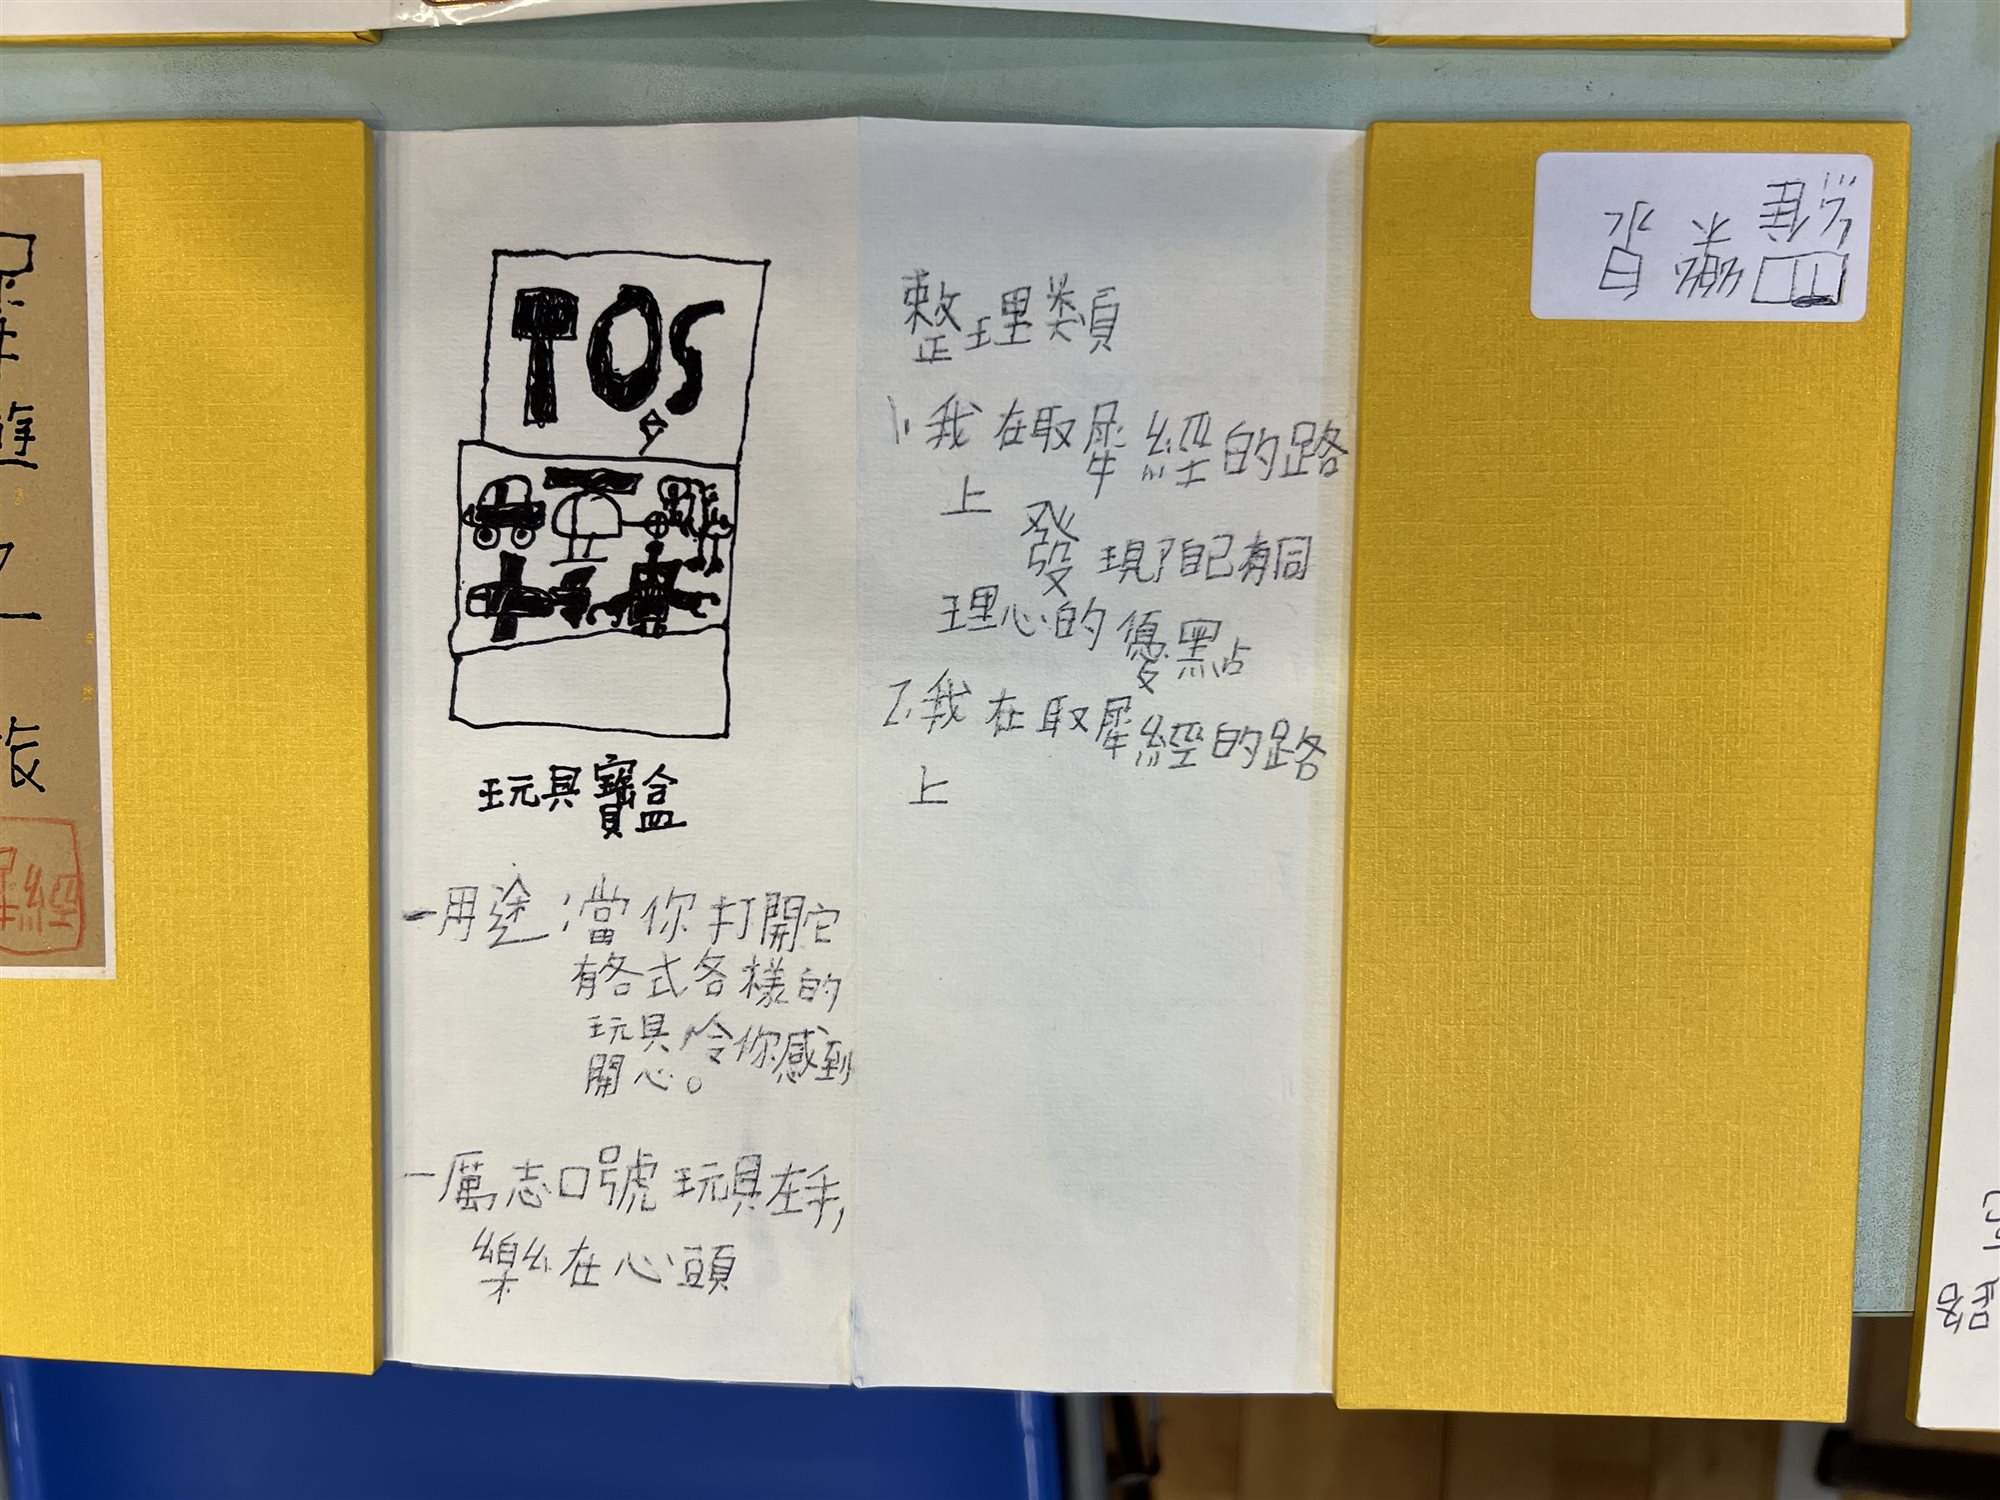 遊
之
旅
經
TOS
玩具寶盒
一用途:當你打開它
有各式各樣的
玩具,令你感到
開心。
一厲志口號 玩具在手,
樂在心頭
整理類
1.我在取犀經的路
上發現了自己有同
理心的優點
2.我在取犀經的路
上